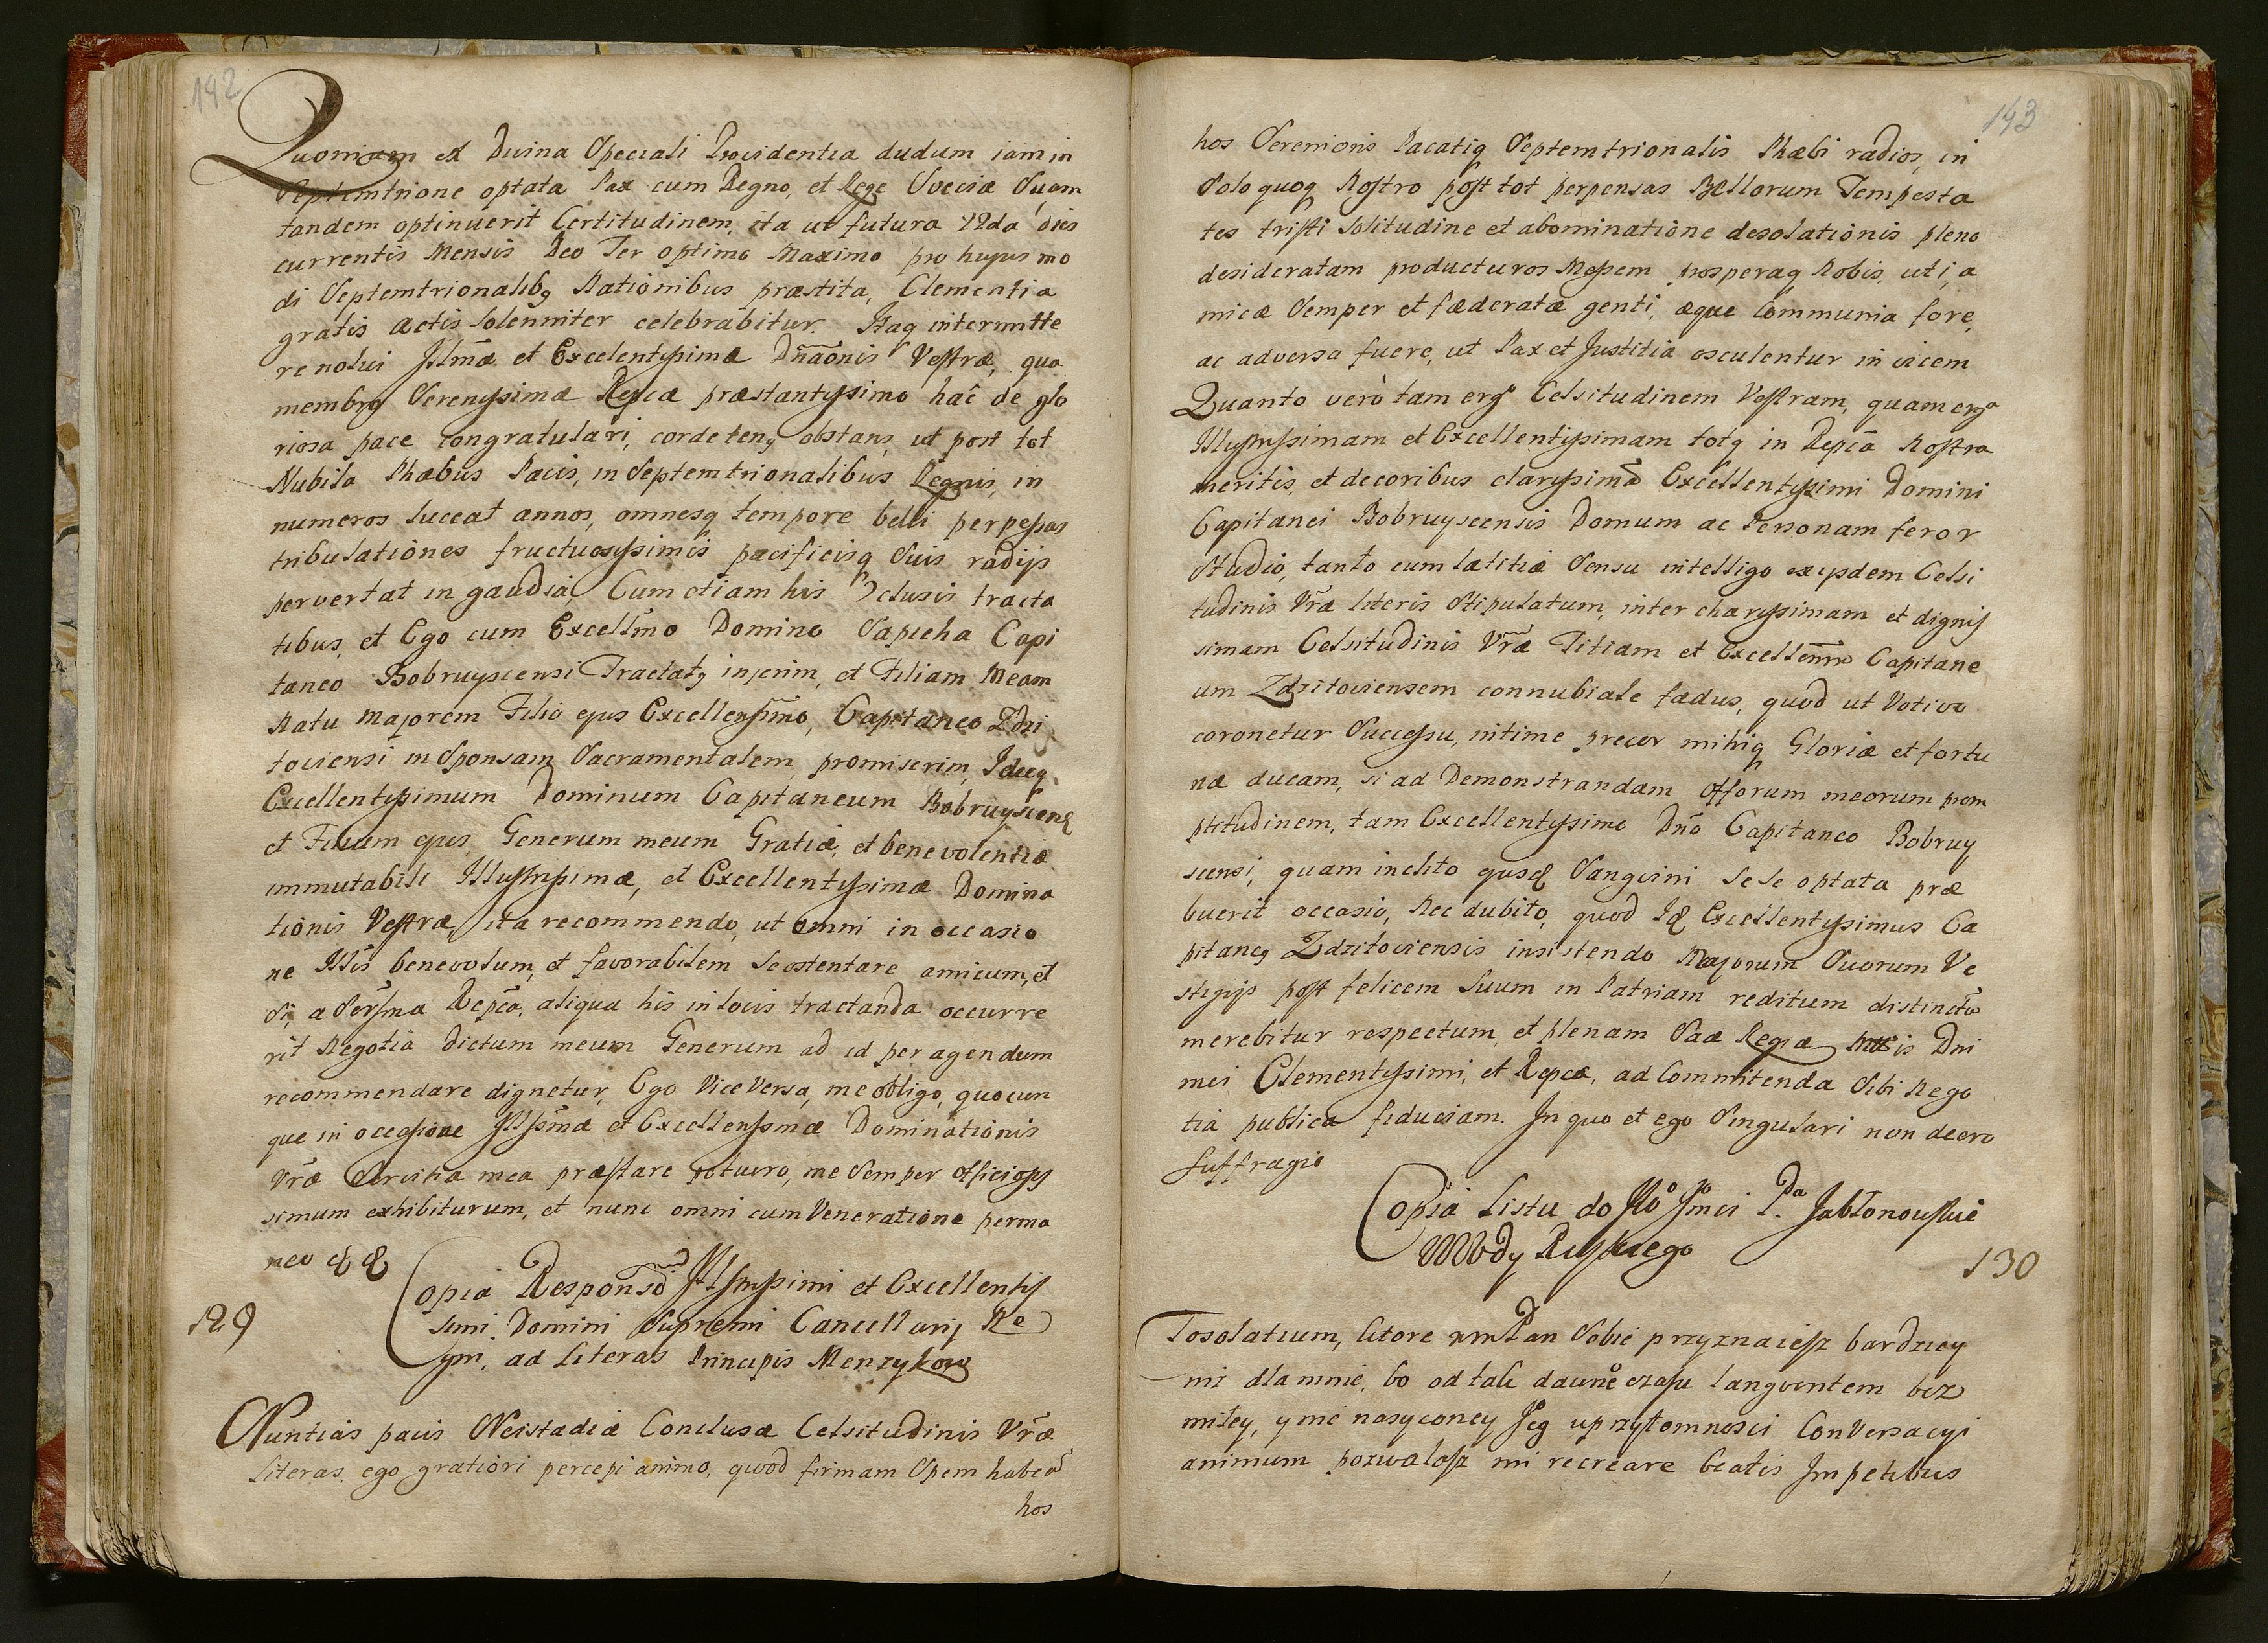 142
Quoniam ex Divina Speciali Providentia dudum iam in
Septemtrione optata Pax cum Regno, et Rege Sveciæ Suam
tandem optinuerit Certitudinem, ita ut futura 22da dies
currentis Mensis Deo Ter optimo Maximo pro hujus mo
di Septemtrionalibq Nationibus præstita, Clementia
gratis actis Solenniter celebrabitur. Itaq intermitte
re nolui Jllmæ et Excelentyssimæ Dnaonis Vestræ, qua
membro Serenyssimæ Repcæ præstantyssimo hac de glo
riosa pace congratulari, corde tenq optans, ut post tot
Nubila Phæbus Pacis, in Septemtrionalibus Regnis, in
numeros luceat annos, omnesq tempore belli perpessas
tribulationes fructuosyssimis pacificisq Suis radijs
pervertat in gaudia. Cum etiam his Conclusis tracta
tibus, et Ego cum Excellmo Domino Sapieha Capi
taneo Bobruyscensi Tractatq injerim, et Filiam Meam
Natu Majorem Filio ejus Excellenssmo, Capitaneo Zdzi
toviensi in Sponsam Sacramentalem promiserim, Ideoq
Excellentyssimum Dominum Capitaneum Bobruyscens
et Filium ejus Generum meum Gratiæ, et benevolentiæ
immutabili Illustryssimæ, et Excellentyssimæ Domina
tionis Vestræ, ita recommendo, ut omni in occasio
ne Illis benevolum, et favorabilem Se ostentare amicum, et
Si, a Serssma Repca, aliqua his in locis tractanda occurre
rit Negotia dictum meum Generum ad id per agendum
recommendare dignetur, Ego Vice Versa, me obligo, quocun
que in occasione Jllssmæ et Excellenssmæ Dominationis
Vræ Servitia mea præstare potuero, me Semper officiosys
simum exhibiturum, et nunc omni cum Veneratione perma
neo & &
129
Copia Responsi Jllustryssimi et Excellentys
simi Domini Supremi Cancellarij Re
gni, ad Literas Principis Menzykow
Nuntias pacis Neistadiæ Conclusæ Celsitudinis Vræ
Literas, ego gratiori percepi animo, quod firmam Spem habeo
hos
143
hos Serenioris Pacatiq Septemtrionalis Phæbi radios, in
Solo quoq Nostro post tot perpensas Bellorum Tempesta
tes tristi Solitudine et abominatione desolationis pleno
desideratam producturos Messem prosperaq Nobis, uti, a
micæ Semper et fæderatæ genti, æque Communia fore,
ac adversa fuere, ut Pax et Justitia osculentur in vicem
Quanto verò tam erga Celsitudinem Vestram, quam erga
Illustryssimam et Excellentyssimam totq in Repca Nostra
meritis, et decoribus claryssimã Excellentyssimi Domini
Capitanei Bobruyscensis Domum ac Personam feror
Studio, tanto cum lætitiæ Sensu intelligo ex ijsdem Celsi
tudinis Vræ literis Stipulatum, inter charyssimam et dignis
simam Celsitudinis Vræ Titiam et Excellenm Capitane
um Zdzitoviensem connubiale fædus, quod ut Votivo
coronetur Successu, intime precor mihiq Gloriæ et fortu
næ ducam, si ad Demonstrandam offorum meorum prom
ptitudinem, tam Excellentyssimo Dno Capitaneo Bobruy
scensi, quam inclito ejusq Sangvini Se Se optata præ
buerit occasio, Nec dubito, quod Iq Excellentyssimus Ca
pitaneq Zdzitoviensis insistendo Majorum Suorum Ve
stigijs post felicem Suum in Patriam reditum distinctu
merebitur respectum, et plenam Sacæ Regiæ Mttis Dni
mei Clementyssimi, et Repcæ, ad Committenda Sibi Nego
tia publica fiduciam. In quo et ego Singulari non deero
Suffragio
Copia Listu do Jmci Pa Jabłonowskie
Wdy Ruskiego
130
To solatium, ktore wm Pan Sobie przyznaiesz bardziey
niz dla mnie, bo od tak dawne czasu langventem bez
miłey, y nie nasyconey Jeg uprzytomnosci Conversacyi
animum pozwalasz mi recreare beatis Impetibus